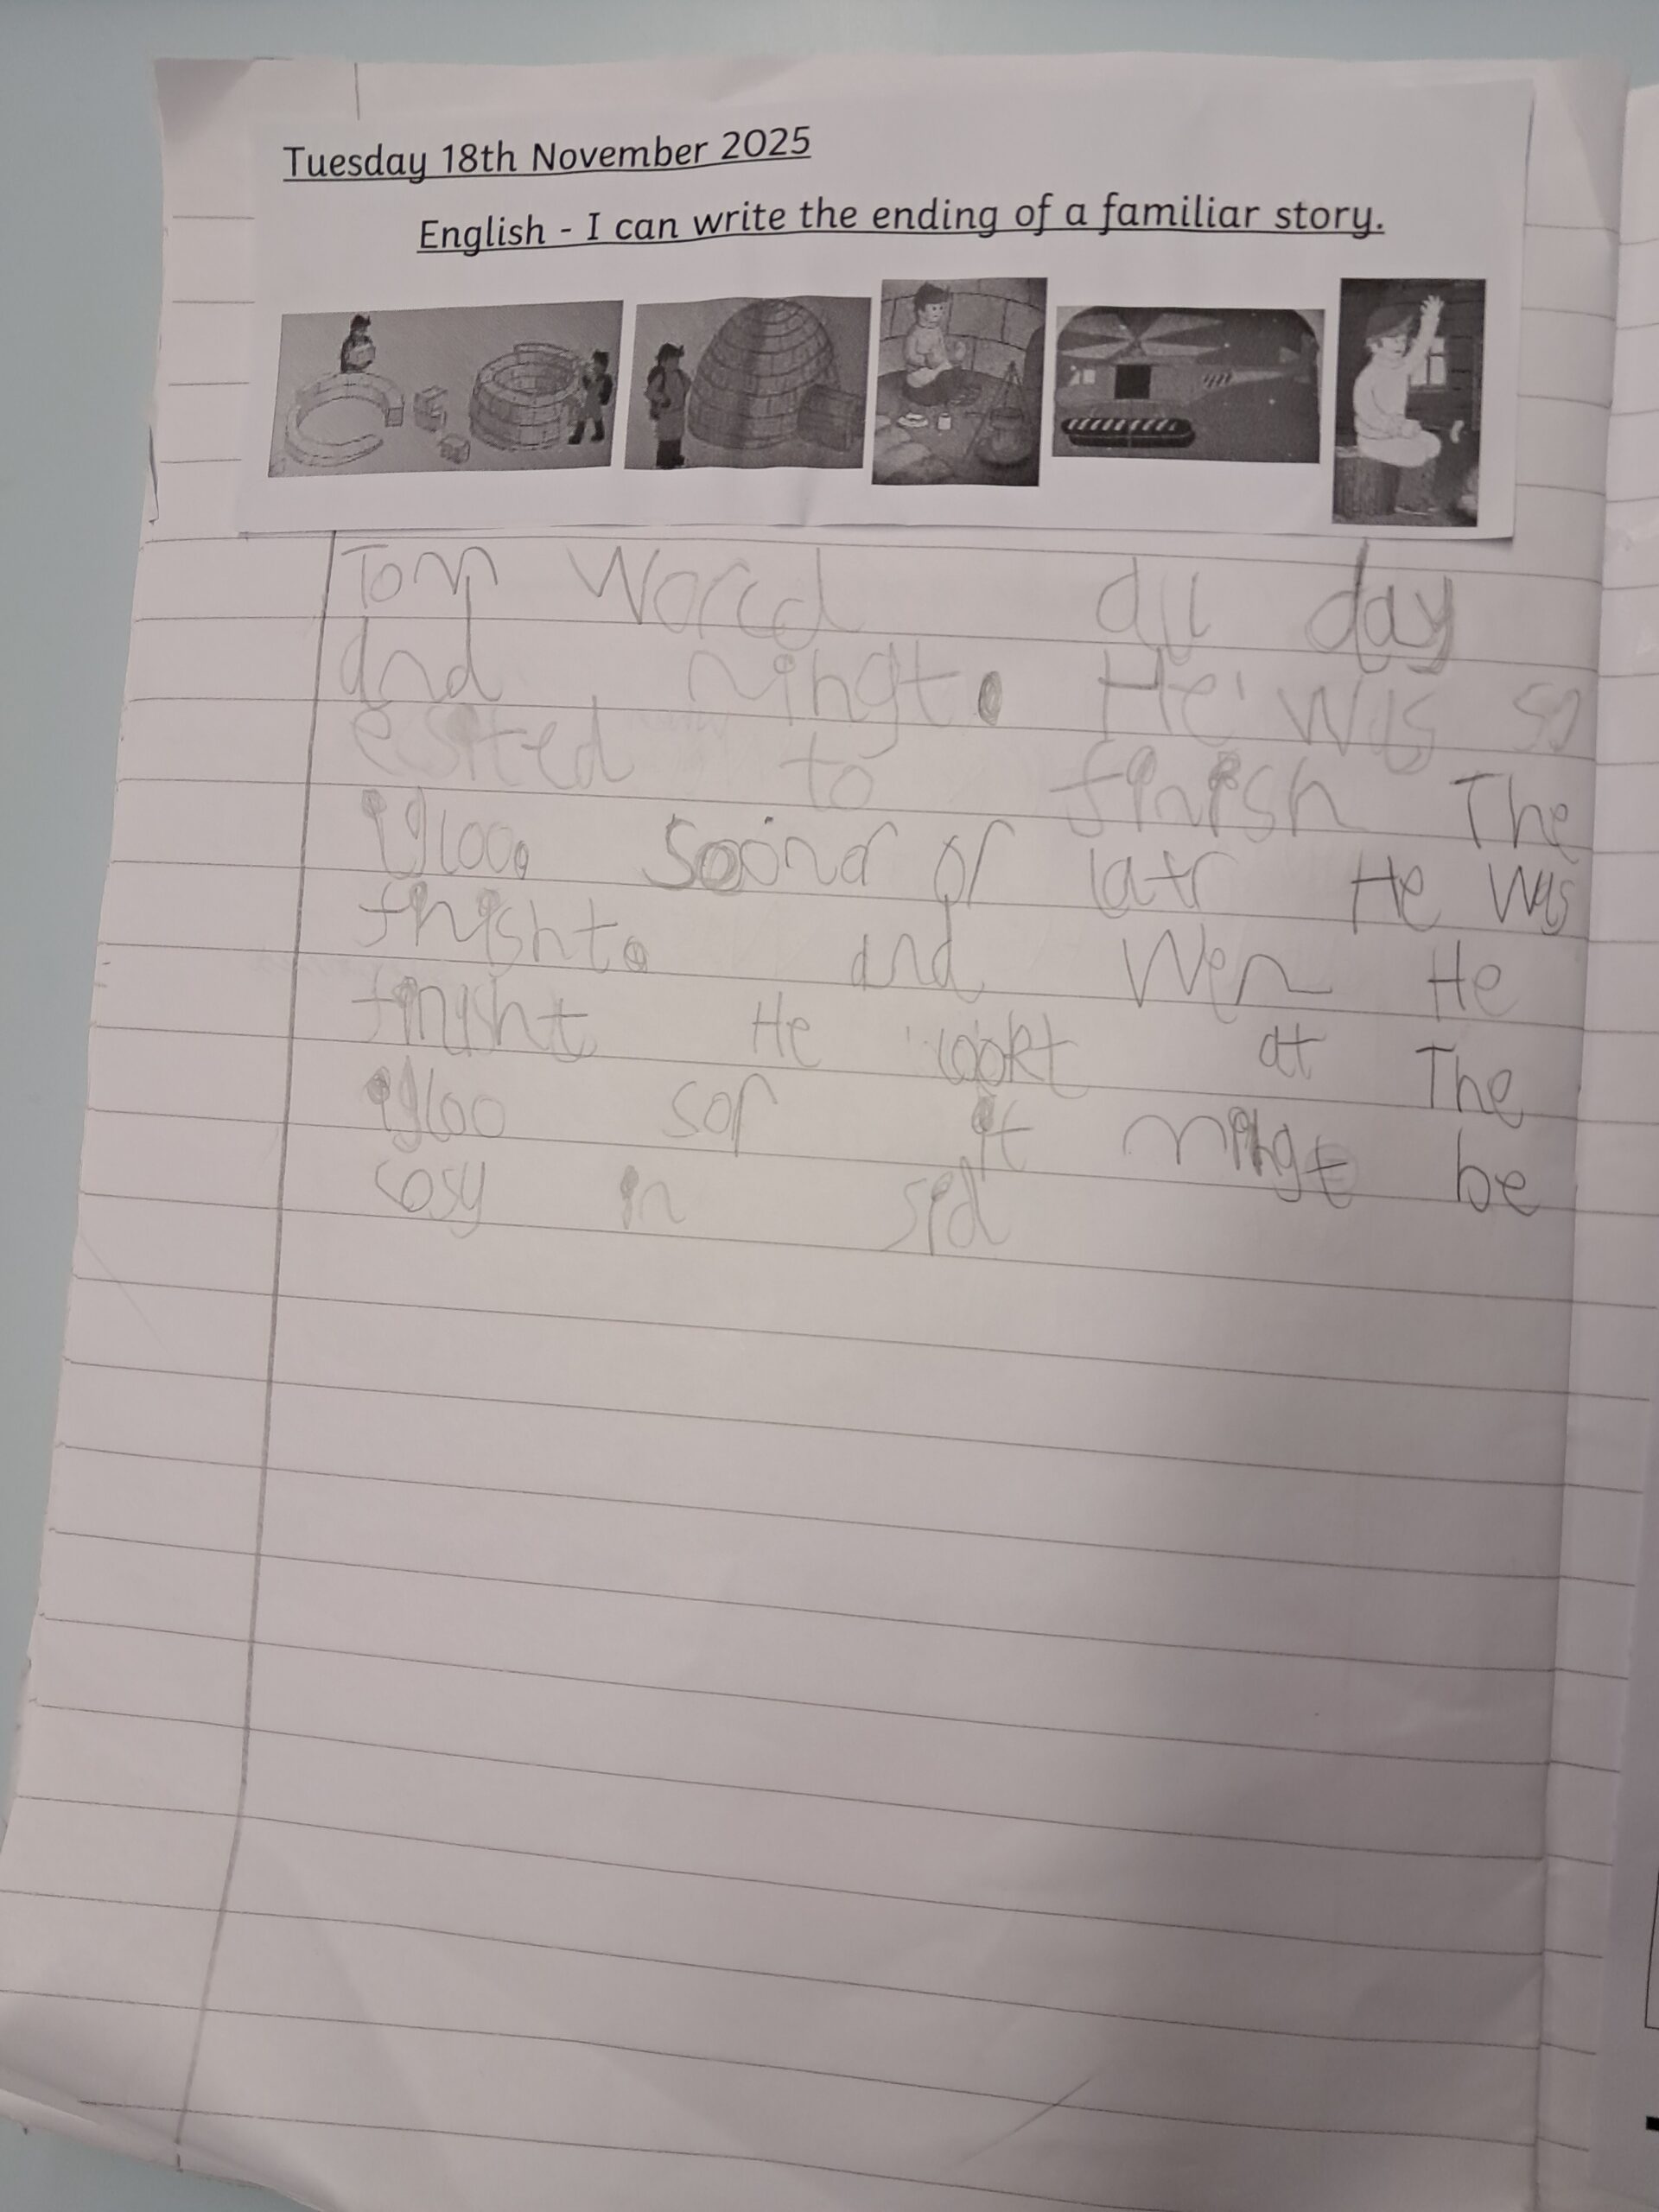 Tuesday 18th November 2025
English - I can write the ending of a familiar story.
Tom Worcd all day
and ningt. He was so
esited to finish The
igloo. Soonor or latr He was
finisht. and Wen He
finisht He lookt at The
igloo sor it mingt be
cosy in sid